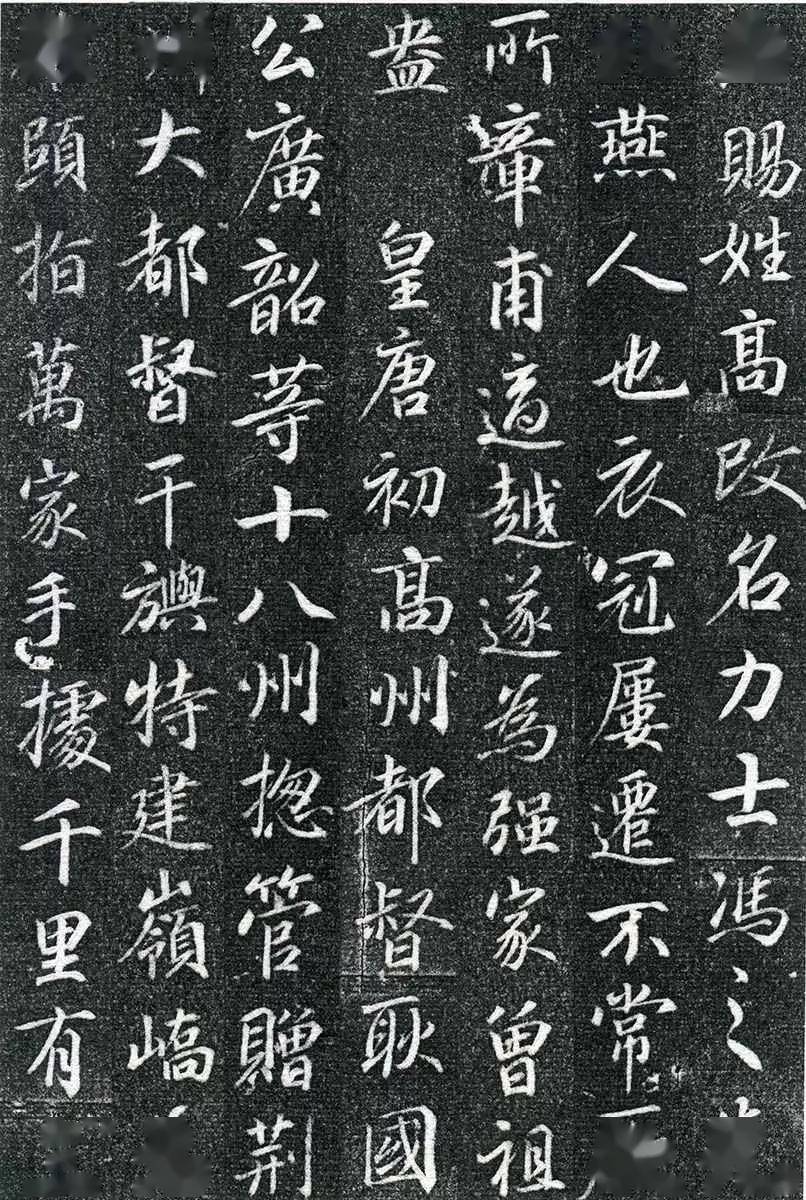 賜姓高改名力士馮之
燕人也衣冠屢遷不常
所章甫適越遂為強家曾祖
盎　皇唐初高州都督耿國
公廣韶等十八州揔管贈荆
大都督干旟特建嶺嶠
頤指萬家手據千里有